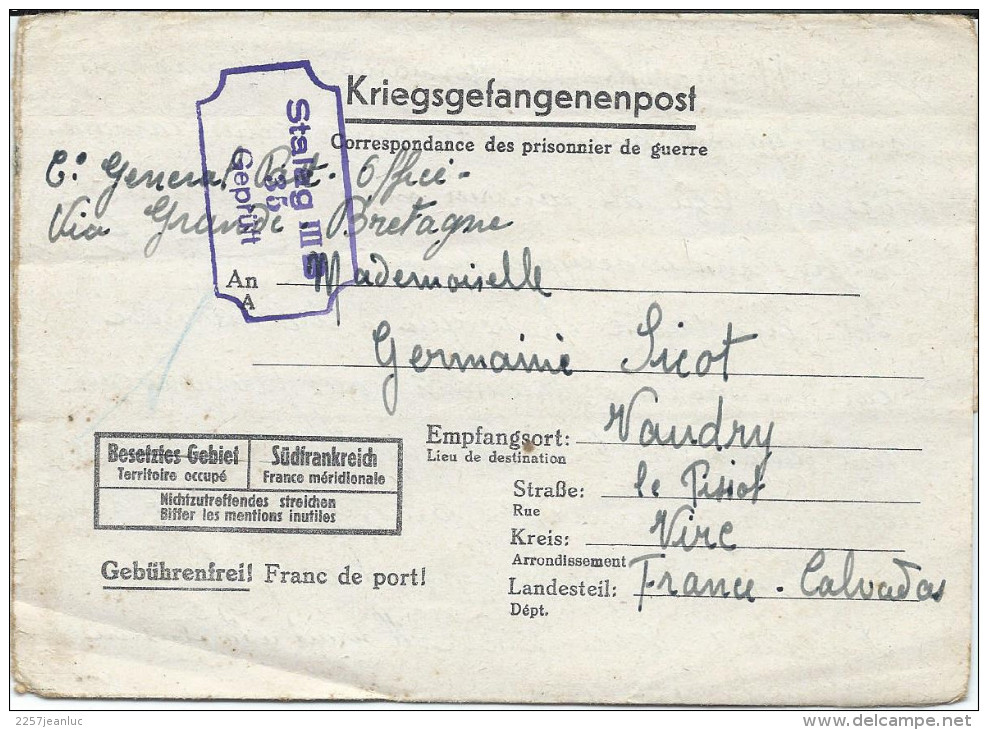 Kriegsgefangenenpost
Correspondance des prisonnier de guerre
Stalag III B
35
Geprüft
C° General Post-Office-
Via Grande Bretagne
An
A
Mademoiselle
Germaine Sicot
Empfangsort: Vaudry
Lieu de destination
Straße: le Pissot
Rue
Kreis: Vire
Arrondissement
Landesteil: France - Calvados
Dépt.
Besetztes Gebiet
Territoire occupé
Südfrankreich
France méridionale
Nichtzutreffendes streichen
Biffer les mentions inutiles
Gebührenfrei! Franc de port!
2257jeanluc
www.delcampe.net